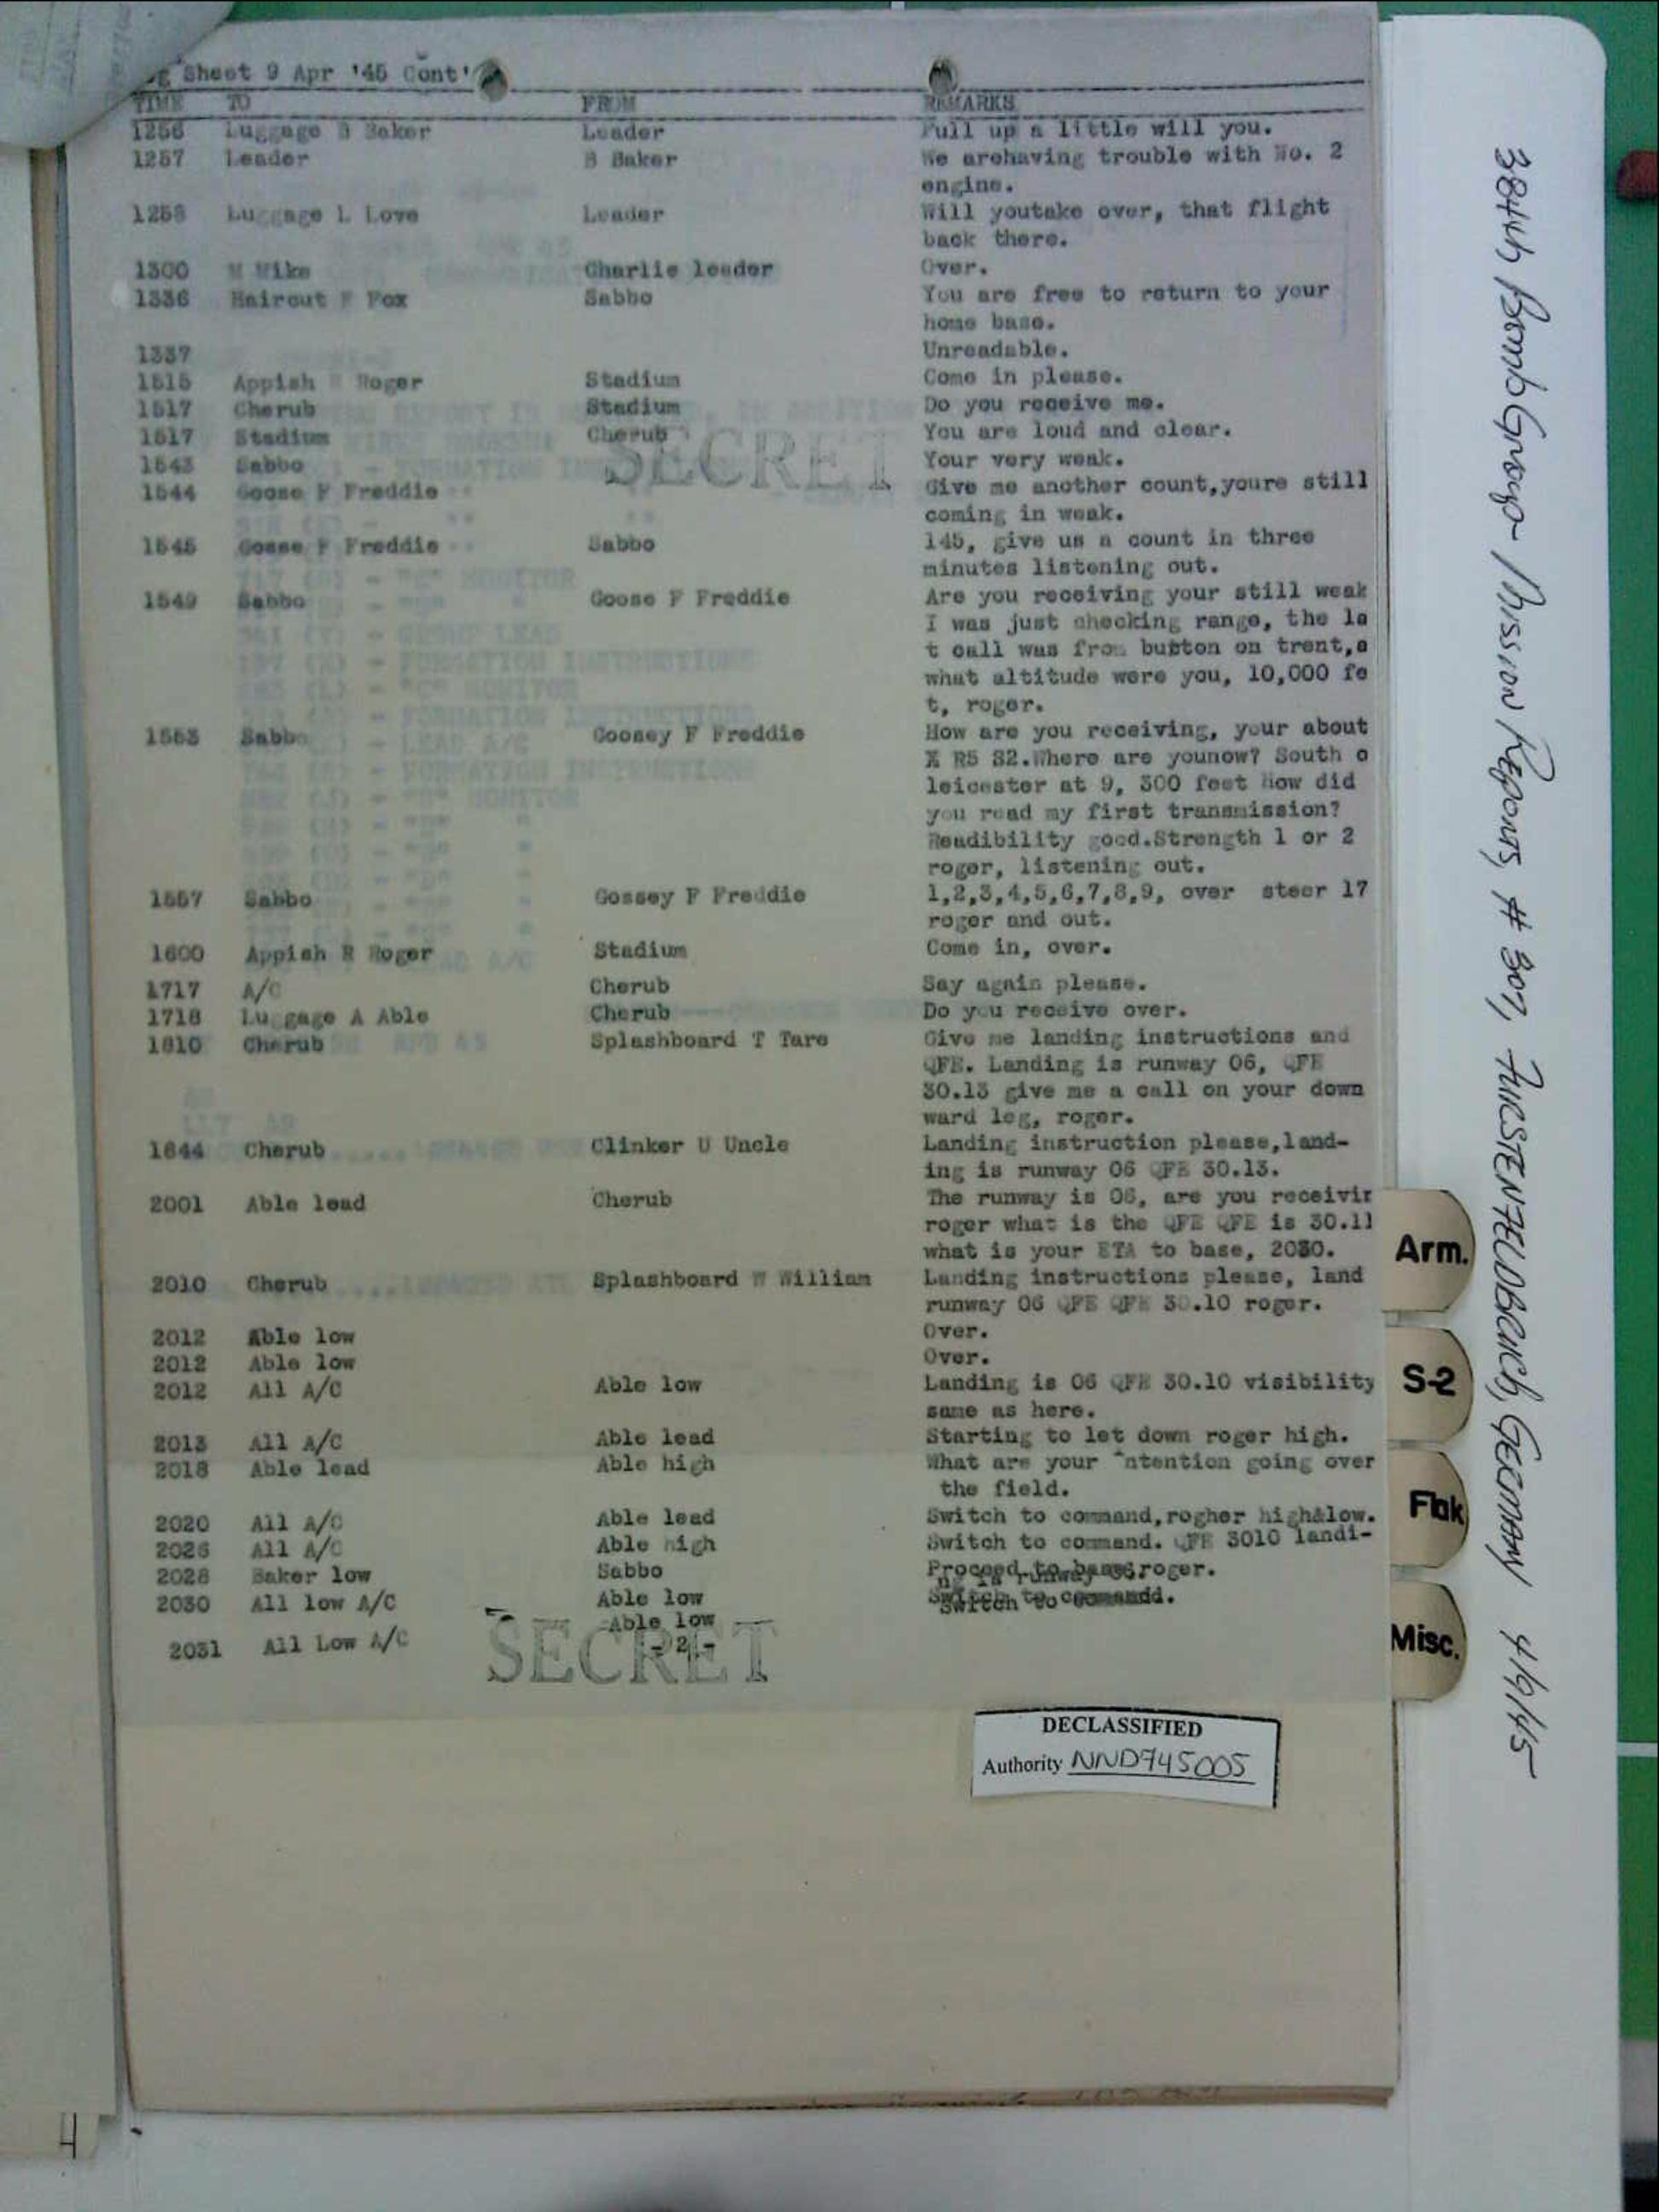 Sheet 9 Apr '45 Cont'
TIME TO FROM REMARKS
1256 Luggage B Baker Leader Pull up a little will you.
1257 Leader B Baker We arehaving trouble with No. 2
engine.
1258 Luggage L Love Leader Will youtake over, that flight
back there.
1300 M Mike Charlie leader Over.
1336 Haircut F Fox Sabbo You are free to return to your
home base.
1337 Unreadable.
1515 Appish R Roger Stadium Come in please.
1517 Cherub Stadium Do you receive me.
1517 Stadium Cherub You are loud and clear.
SECRET
1543 Sabbo Your very weak.
1544 Goose F Freddie Give me another count,youre still
coming in weak.
1545 Goose F Freddie Sabbo 145, give us a count in three
minutes listening out.
1549 Sabbo Goose F Freddie Are you receiving your still weak
I was just checking range, the la
t call was from button on trent,
what altitude were you, 10,000 fe
t, roger.
1553 Sabbo Goosey F Freddie How are you receiving, your about
X R5 S2.Where are younow? South o
leicester at 9, 500 feet How did
you read my first transmission?
Readibility good.Strength 1 or 2
roger, listening out.
1557 Sabbo Gossey F Freddie 1,2,3,4,5,6,7,8,9, over steer 17
roger and out.
1600 Appish R Roger Stadium Come in, over.
1717 A/C Cherub Say again please.
1718 Luggage A Able Cherub Do you receive over.
1810 Cherub Splashboard T Tare Give me landing instructions and
QFE. Landing is runway 06, QFE
30.13 give me a call on your down
ward leg, roger.
1844 Cherub Clinker U Uncle Landing instruction please,land-
ing is runway 06 QFE 30.13.
2001 Able lead Cherub The runway is 06, are you receivir
roger what is the QFE QFE is 30.11
what is your ETA to base, 2030.
2010 Cherub Splashboard W William Landing instructions please, land
runway 06 QFE QFE 30.10 roger.
2012 Able low Over.
2012 Able low Over.
2012 All A/C Able low Landing is 06 QFE 30.10 visibility
same as here.
2013 All A/C Able lead Starting to let down roger high.
2018 Able lead Able high What are your ntention going over
the field.
2020 All A/C Able lead Switch to command,rogher high&low.
2026 All A/C Able high Switch to command. QFE 3010 landi-
2028 Baker low Sabbo Proceed to base roger.
2030 All low A/C Able low Switch to command.
2031 All Low A/C Able low
- 2 -
SECRET
DECLASSIFIED
Authority NND745005
Arm.
S-2
Flak
Misc.
384th Bomb Group - Mission Reports, # 307, FURSTENFELDBRUCH, GERMANY 4/9/45
4